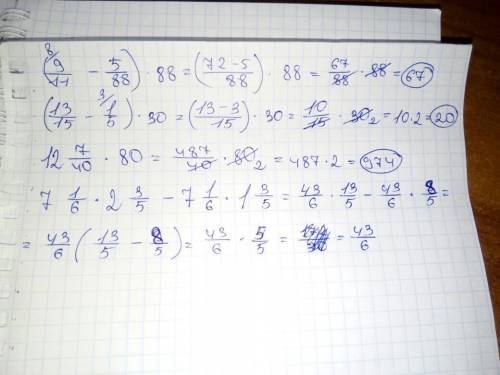 (⁸9/11 - 5/88) · 88 = (72-5/88) · 88 = 67/88 · 88 = 67
(13/15 - ³1/5) · 30 = (13-3/15) · 30 = 10/15 · 30 2 = 10·2 = 20
12 7/40 · 80 = 487/40 · 80 2 = 487·2 = 974
7 1/6 · 2 3/5 - 7 1/6 · 1 3/5 = 43/6 · 13/5 - 43/6 · 8/5 =
= 43/6 (13/5 - 8/5) = 43/6 · 5/5 = = 43/6